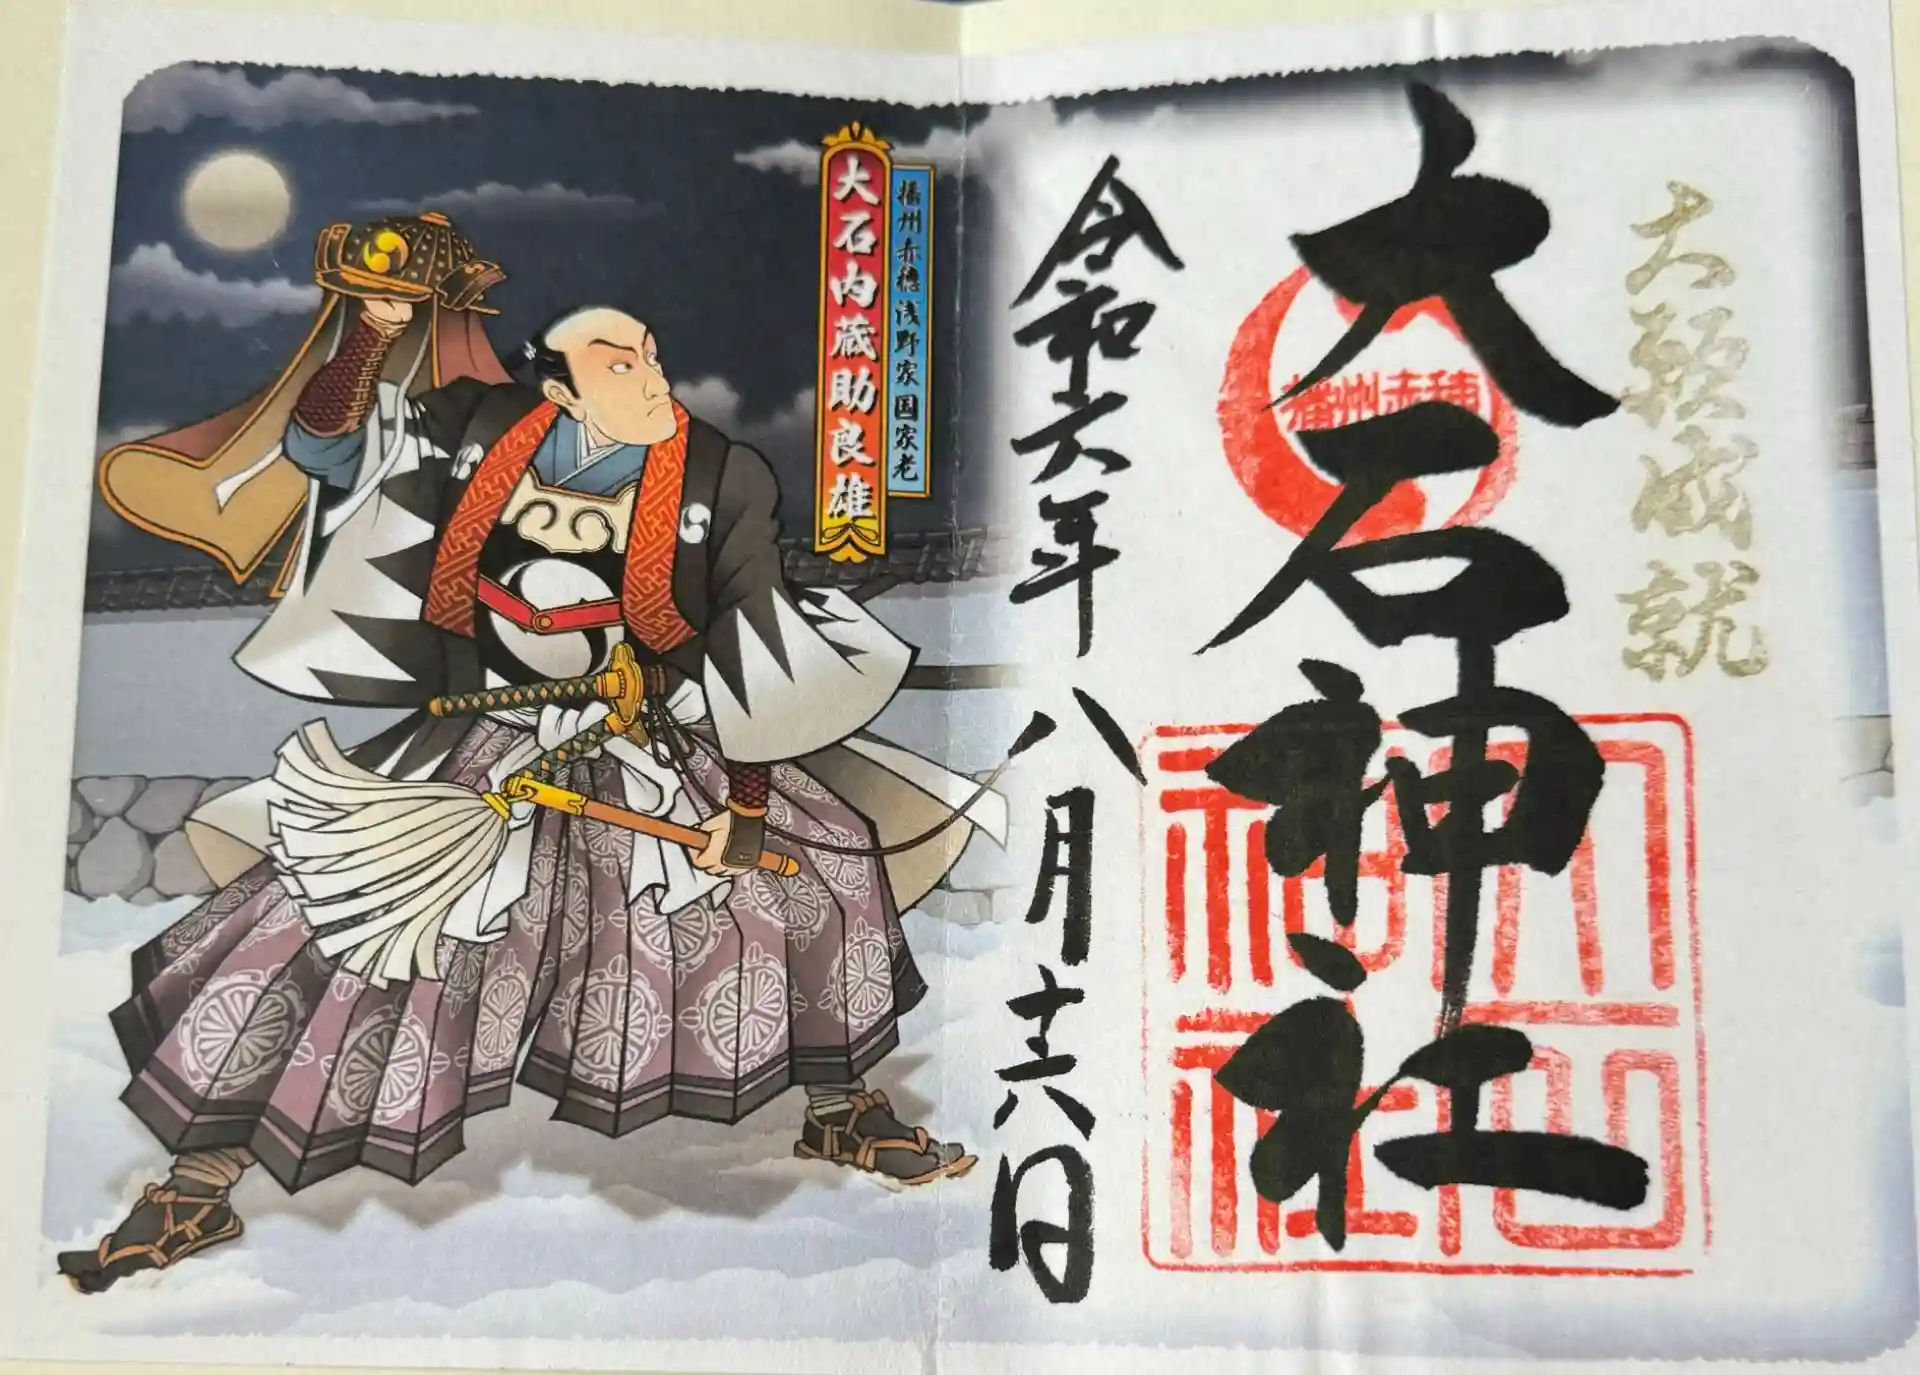 大願成就
大石神社
播州赤穂
大石神社
令和六年八月十六日
播州赤穂浅野家国家老
大石内蔵助良雄